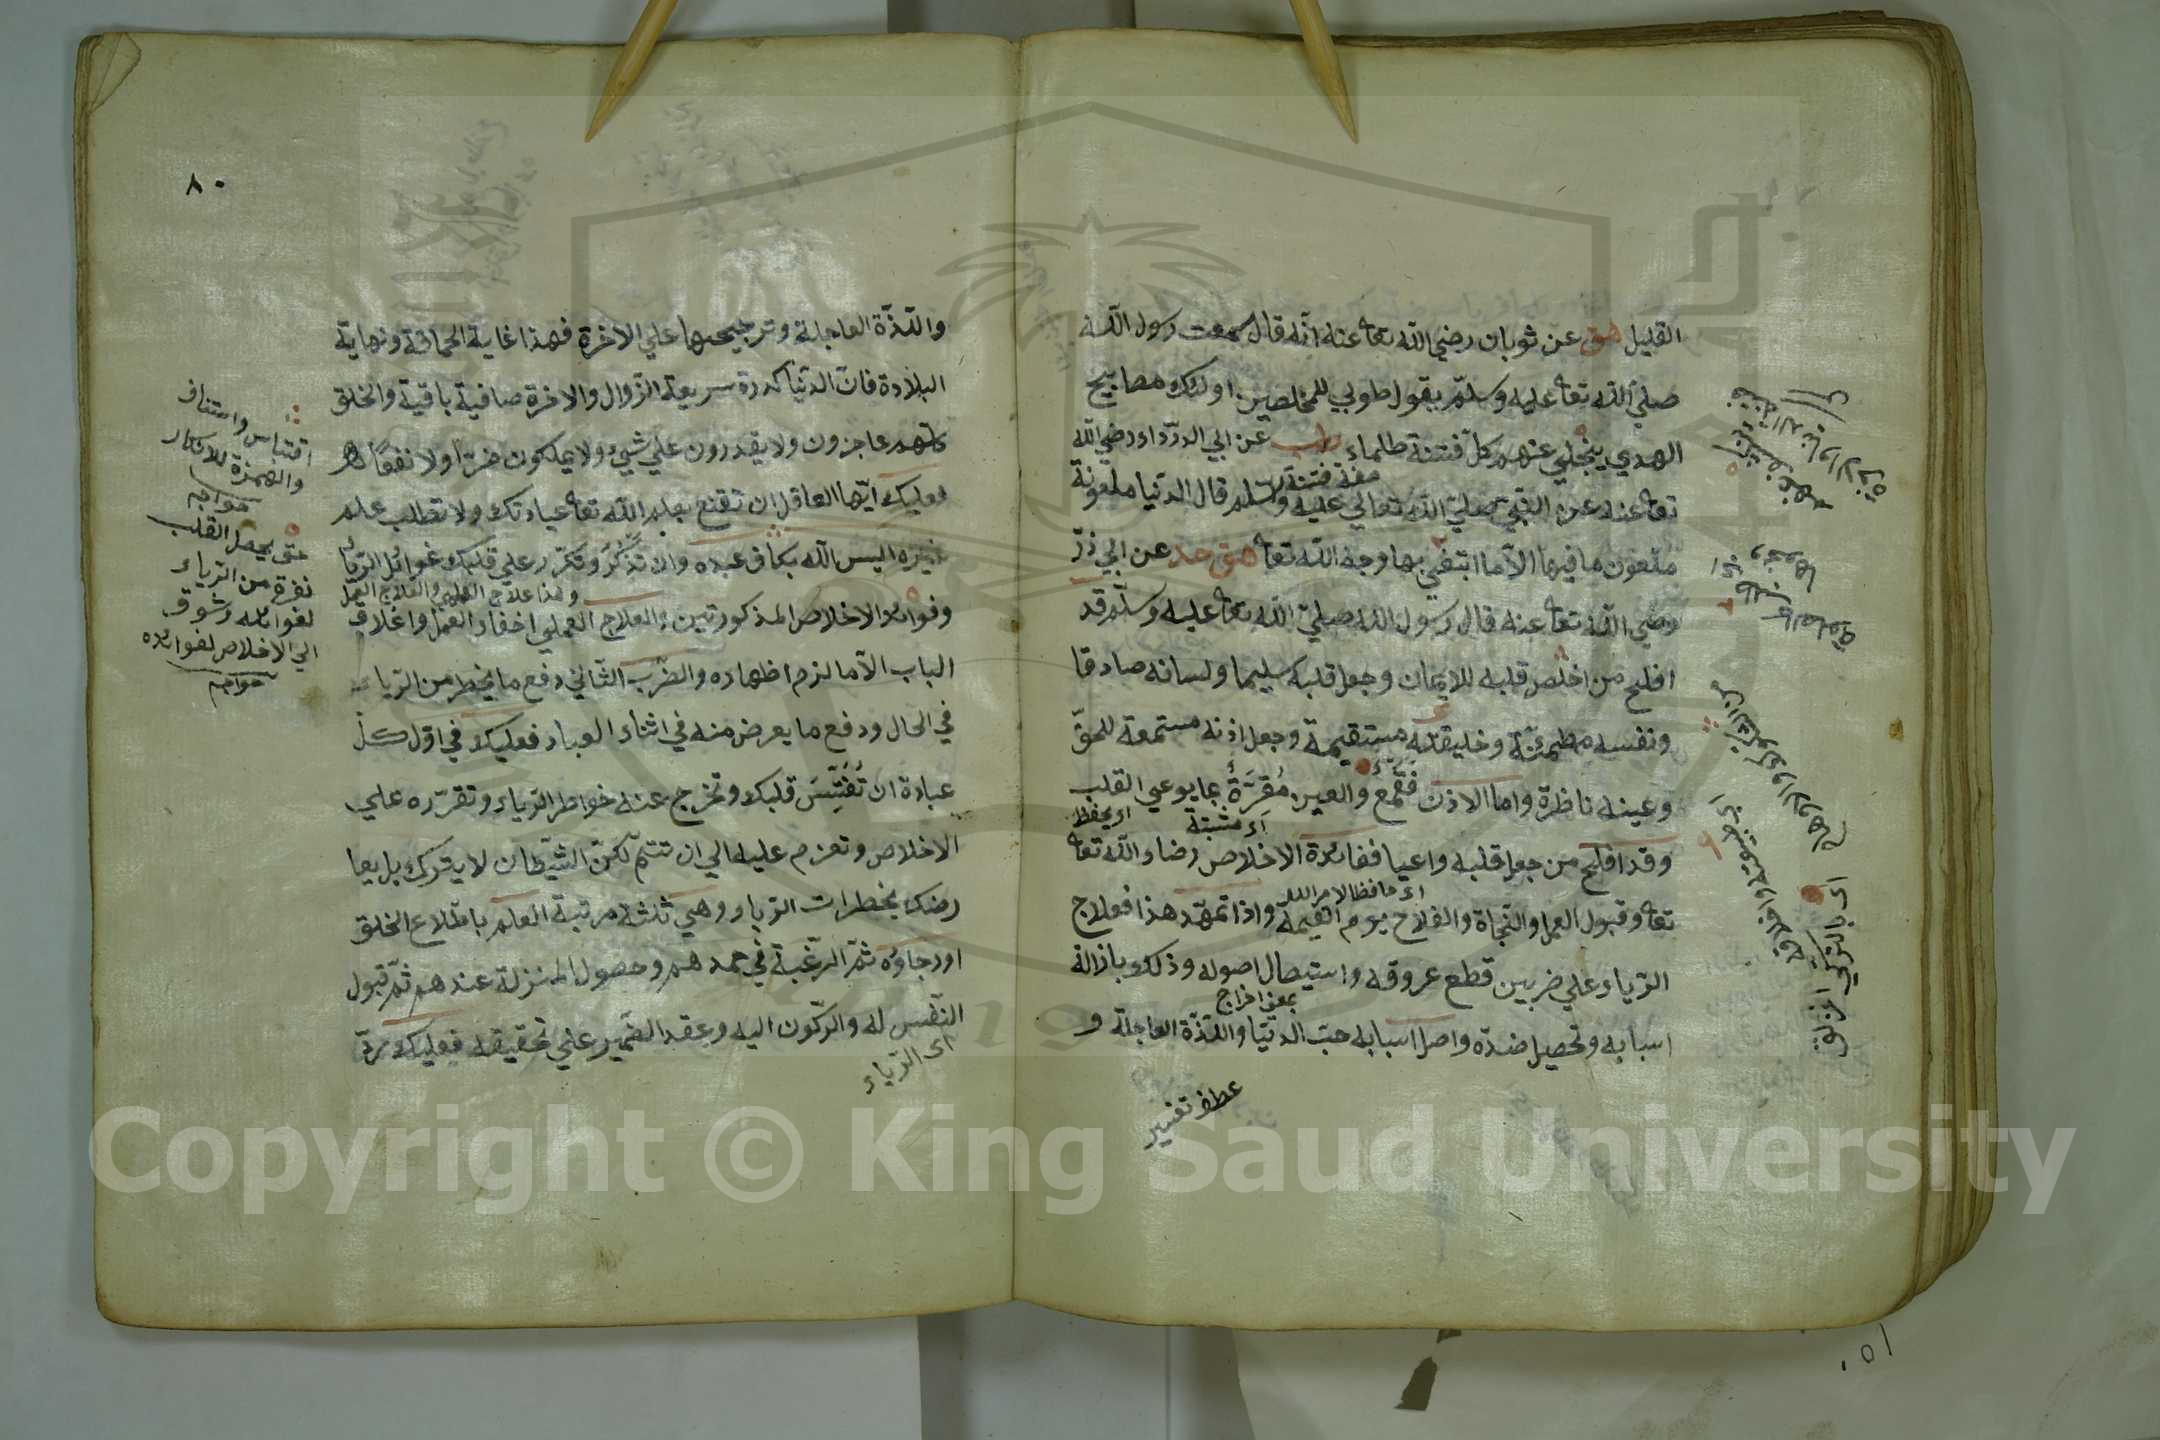 القليل هق عن ثوبان رضي الله تعا عنه انه قال سمعت رسول الله
صلي الله تعا عليه وسلم يقول طوبي للمخلصين اولئك مصابيح
الهدي ينجلي عنهم كل فتنة ظلماء طب عن ابي الدرداء رضي الله
صفة فتنة
تعا عنه عن النبي صلي الله تعالي عليه وسلم قال الدنيا ملعونة
ملعون ما فيها الا ما ابتغي بها وجه الله تعا هق حد عن ابي ذر
رضي الله تعا عنه قال رسول الله صلي الله تعا عليه وسلم قد
افلح من اخلص قلبه للايمان وجعل قلبه سليما ولسانه صادقا
ونفسه مطمئنة وخليقته مستقيمة وجعل اذنه مستمعة للحق
وعينه ناظرة واما الاذن فقمع والعين مُقرَةٌ بما يوعي القلب
اي مثبتة
اي يحفظ
وقد افلح من جعل قلبه واعيا ففائدة الاخلاص رضاء الله تعا
اي حافظا لامر الله
تعا وقبول العمل والنجاة والفلاح يوم القيمة واذا تمهد هذا فعلاج
الرياء علي ضربين قطع عروقه واستيصال اصوله وذلك بازالة
بمعني اخراج
اسبابه وتحصيل ضده واصل اسبابه حب الدنيا واللذة العاجلة و
عطف تفسير
٨٠
واللذة العاجلة وترجيحها علي الاخرة فهذا غاية الحماقة ونهاية
البلادة فان الدنيا كدرة سريعة الزوال والاخرة صافية باقية والخلق
كلهم عاجزون ولا يقدرون علي شيء ولا يملكون ضرا ولا نفعا
فعليك ايها العاقل ان تقنع بعلم الله تعا عبادتك ولا تطلب علم
غيره اليس الله بكاف عبده وان تذكر وتكرر علي قلبك غوائل الرياء
وهذا علاج العلمي والعلاج العمل
وفوائد الاخلاص المذكورتين والعلاج العملي اخفاء العمل واغلاق
الباب الا ما لزم اظهاره والضرب الثاني دفع ما يخطر من الرياء
في الحال ودفع ما يعرض منه في اثناء العباد فعليك في اول كل
عبادة ان تُفَتِّسَ قلبك وتخرج عنه خواطر الرياء وتقرره علي
الاخلاص وتعزم عليه الي ان تتم لكن الشيطان لا يتركك بل يعا
رضك بخطرات الرياء وهي ثلثة مرتبة العلم باطلاع الخلق
اورجاؤه ثم الرغبة في حمدهم وحصول المنزلة عندهم ثم قبول
النفس له والركون اليه وعقد الضمير علي تحقيقه فعليك رد
اي الرياء
اقتباس واستئناف
والهمزة للانكار
خواجم
حتي يحصل القلب
نفرة من الرياء
لغوائله وشوق
الي الاخلاص لفوائده
خواجم
Copyright © King Saud University